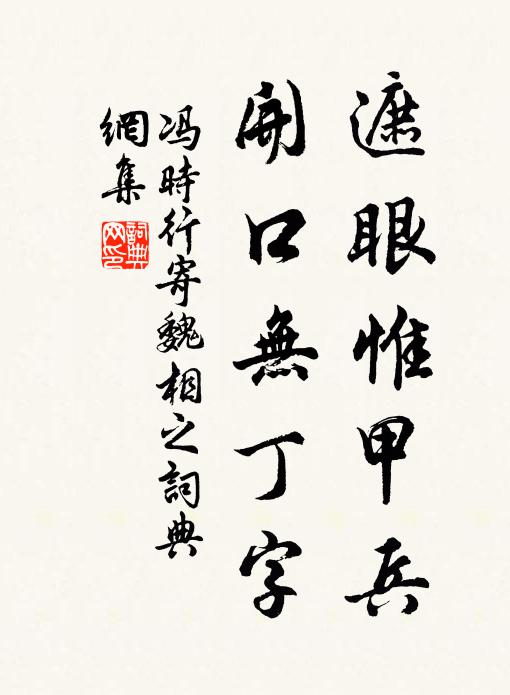 遮眼惟甲兵
開口無丁字
冯時行寄魏相之詞典
網集
詞典
网印